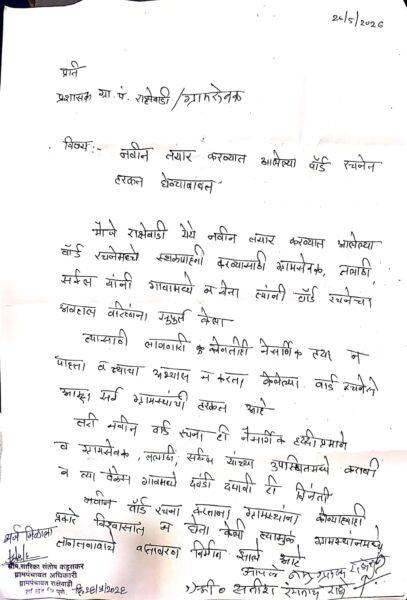 २८/५/2026
प्रति
प्रशासक ग्रा. पं. राक्षेवाडी / ग्रामसेवक
विषय:- नवीन तयार करण्यात आलेल्या वॉर्ड रचनेस
हरकत घेण्याबाबत
मौजे राक्षेवाडी येथे नवीन तयार करण्यात आलेल्या
वॉर्ड रचनेमध्ये स्थळपाहणी करण्यासाठी ग्रामसेवक, तलाठी,
सर्कल यांनी गावामध्ये न येता त्यांनी वॉर्ड रचनेचा
अहवाल वरिष्ठांना केला
त्यासाठी लागणारी कोणतीही नैसर्गिक हद्द न
पाहता व त्याचा अभ्यास न करता केलेल्या वार्ड रचनेस
आम्हा सर्व ग्रामस्थांची हरकत आहे
तरी नवीन वॉर्ड रचना ही नैसर्गिक हद्दी प्रमाणे
व ग्रामसेवक, तलाठी, सर्कल यांच्या उपस्थितमध्ये करावी
व त्या वेळेस गावामध्ये दवंडी द्यावी ही विनंती
नवीन वॉर्ड रचना करताना ग्रामस्थांना कोणत्याही
प्रकारे विश्वासात न घेता केली त्यामुळे ग्रामस्थानमध्ये
वातावरण निर्माण झाले आहे
अर्ज मिळाला
सौ. सारिका संतोष कडूसकर
ग्रामपंचायत अधिकारी
ग्रामपंचायत राक्षेवाडी
आपले
सतीश राक्षे